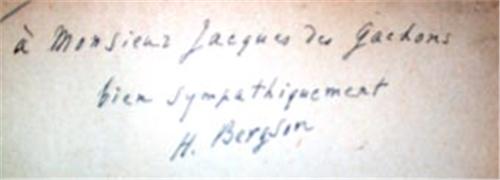 à Monsieur Jacques des Gachons
bien sympathiquement
H. Bergson